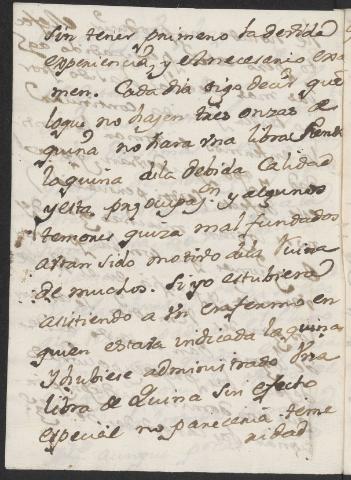 sin tener primero la devida
experiencia, y el necesario exa
men. Cada dia oigo decir que
loque no hazen tres onzas de
quina no hara una libra siendo
la quina dela debida calidad
y esta preocupaz.on y algunos
temores quiza mal fundados
avran sido motivo dela ruina
de muchos. Si yo estubiera
asistiendo a un enfermo en
quien estava indicada la quina
y hubiese administrado una
libra de Quina sin efecto
especial no pareceria teme
ridad